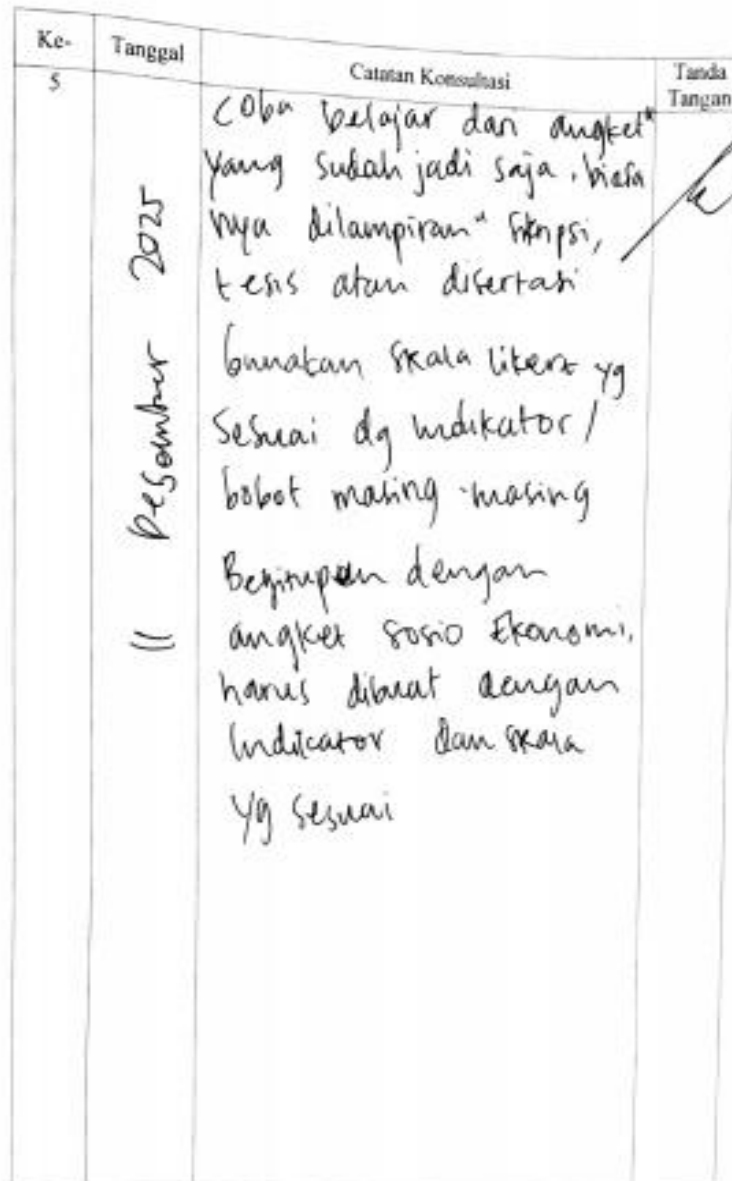 Ke-
Tanggal
Catatan Konsultasi
Tanda
Tangan
5
11 Desember 2025
Coba belajar dari angket"
yang sudah jadi saja, biasa
nya dilampiran" skripsi,
tesis atau disertasi
Gunakan skala likert yg
sesuai dg indikator/
bobot masing-masing
Begitupun dengan
angket sosio Ekonomi,
harus dibuat dengan
Indicator dan skala
yg sesuai